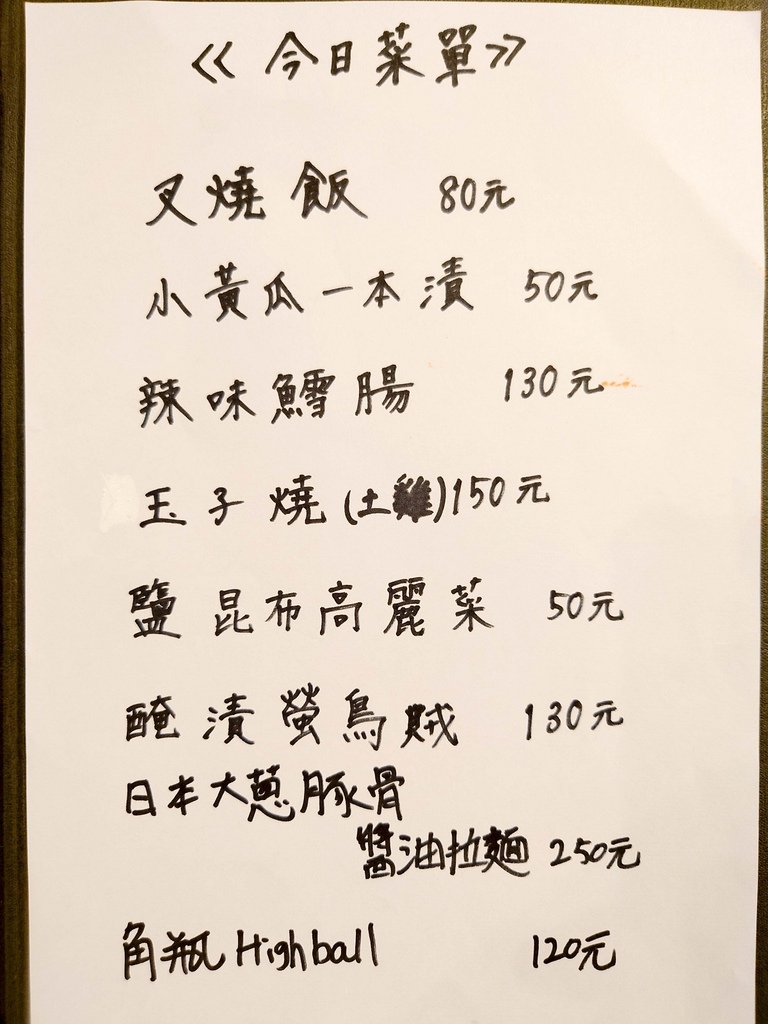 <<今日菜單>>
叉燒飯 80元
小黃瓜一本漬 50元
辣味鱈腸 130元
玉子燒(土雞)150元
鹽昆布高麗菜 50元
醃漬螢烏賊 130元
日本大蔥豚骨
醬油拉麵 250元
角瓶Highball 120元